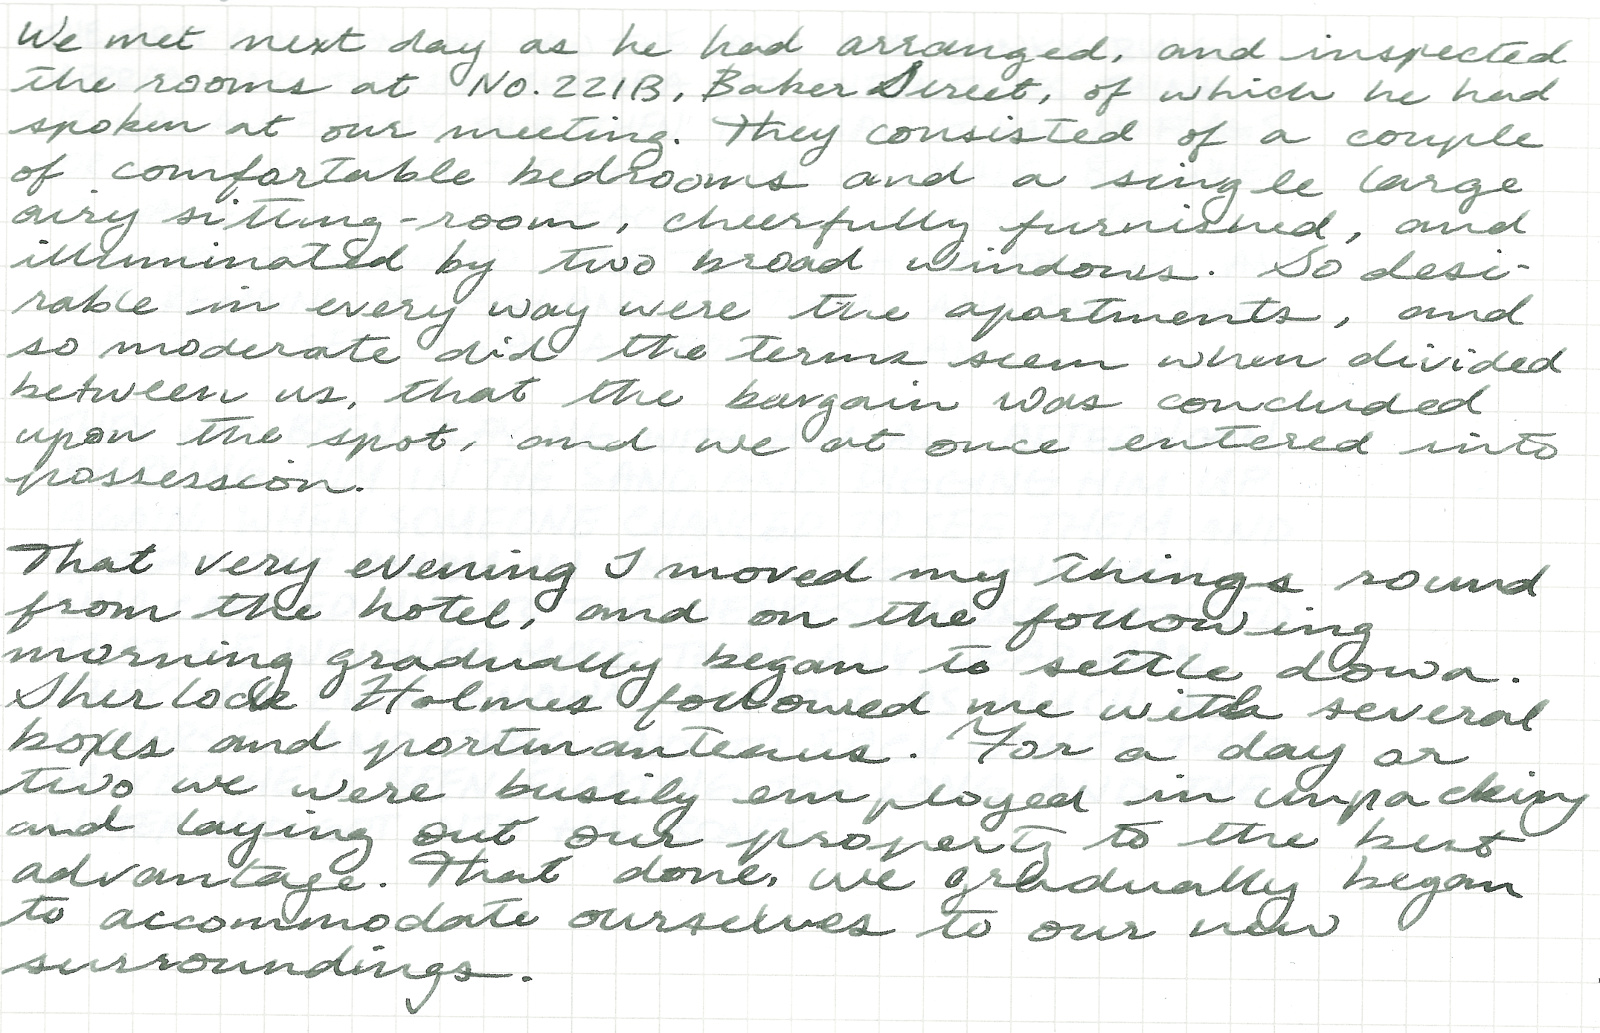 We met next day as he had arranged, and inspected
the rooms at No. 221B, Baker Street, of which he had
spoken at our meeting. They consisted of a couple
of comfortable bedrooms and a single large
airy sitting-room, cheerfully furnished, and
illuminated by two broad windows. So desi-
rable in every way were the apartments, and
so moderate did the terms seem when divided
between us, that the bargain was concluded
upon the spot, and we at once entered into
possession.
That very evening I moved my things round
from the hotel, and on the following
morning gradually began to settle down.
Sherlock Holmes followed me with several
boxes and portmanteaus. For a day or
two we were busily employed in unpacking
and laying out our property to the best
advantage. That done, we gradually began
to accommodate ourselves to our new
surroundings.